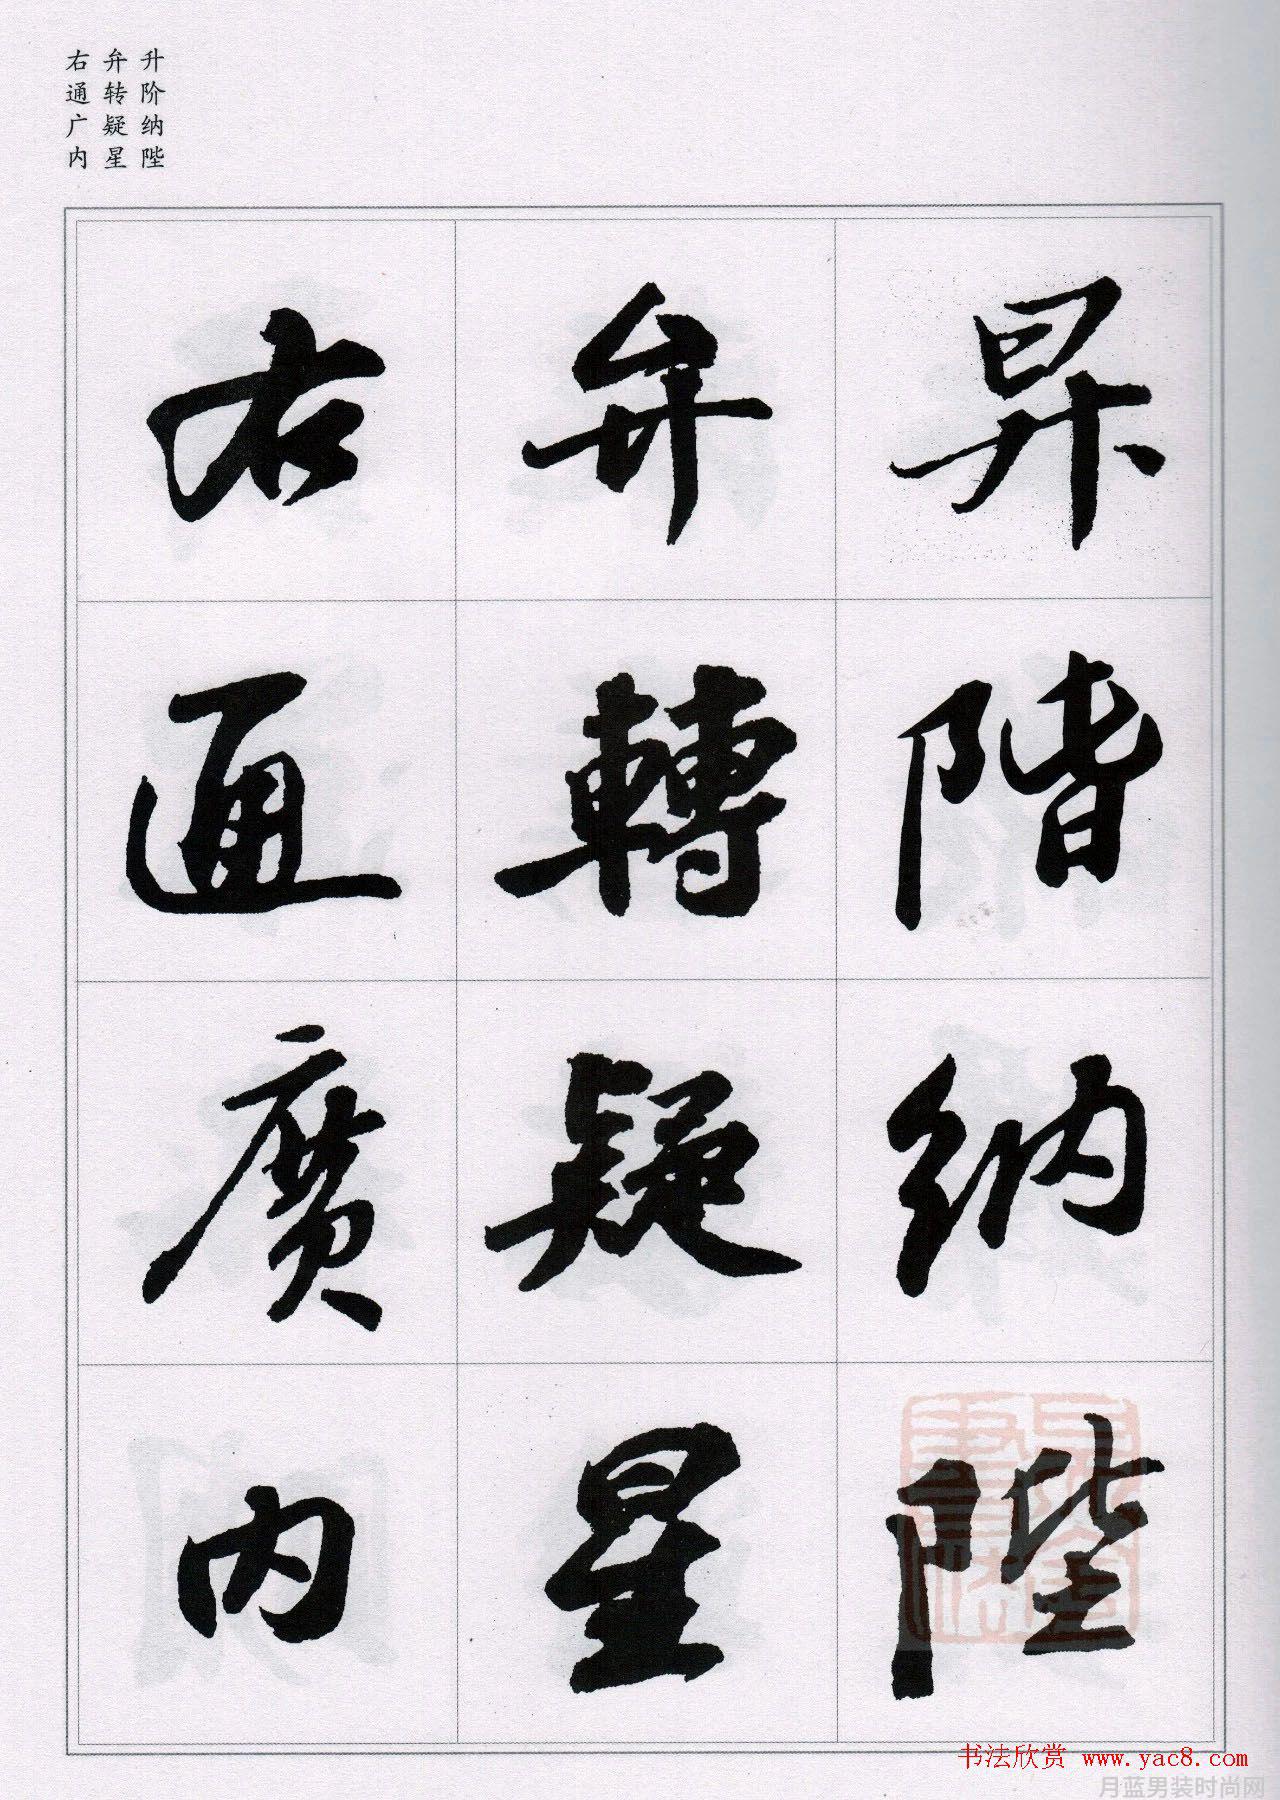 升阶纳陛
弁转疑星
右通广内
昇階纳陛
弁轉疑星
右通廣内
书法欣赏 www.yac8.com
月蓝男装时尚网